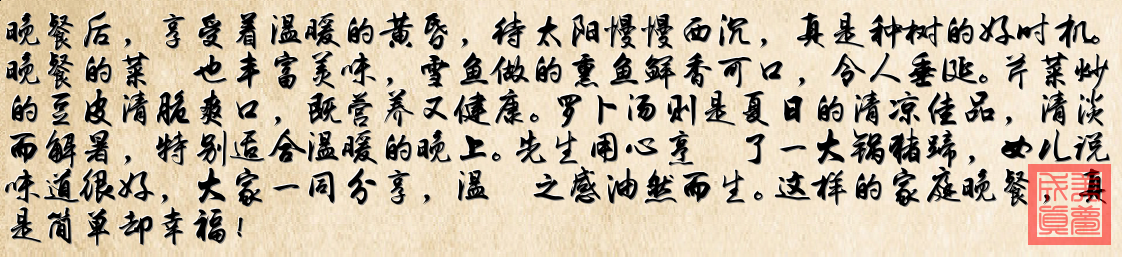 晚餐后，享受着温暖的黄昏，待太阳慢慢西沉，真是种树的好时机。
晚餐的菜 也丰富美味，雪鱼做的熏鱼鲜香可口，令人垂涎。芹菜炒
的豆皮清脆爽口，既营养又健康。罗卜汤则是夏日的清凉佳品，清淡
而解暑，特别适合温暖的晚上。先生用心烹 了一大锅猪蹄，女儿说
味道很好，大家一同分享，温 之感油然而生。这样的家庭晚餐，真
是简单却幸福！